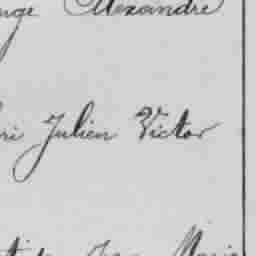 nge Alexandre
ri Julien Victor
Marie